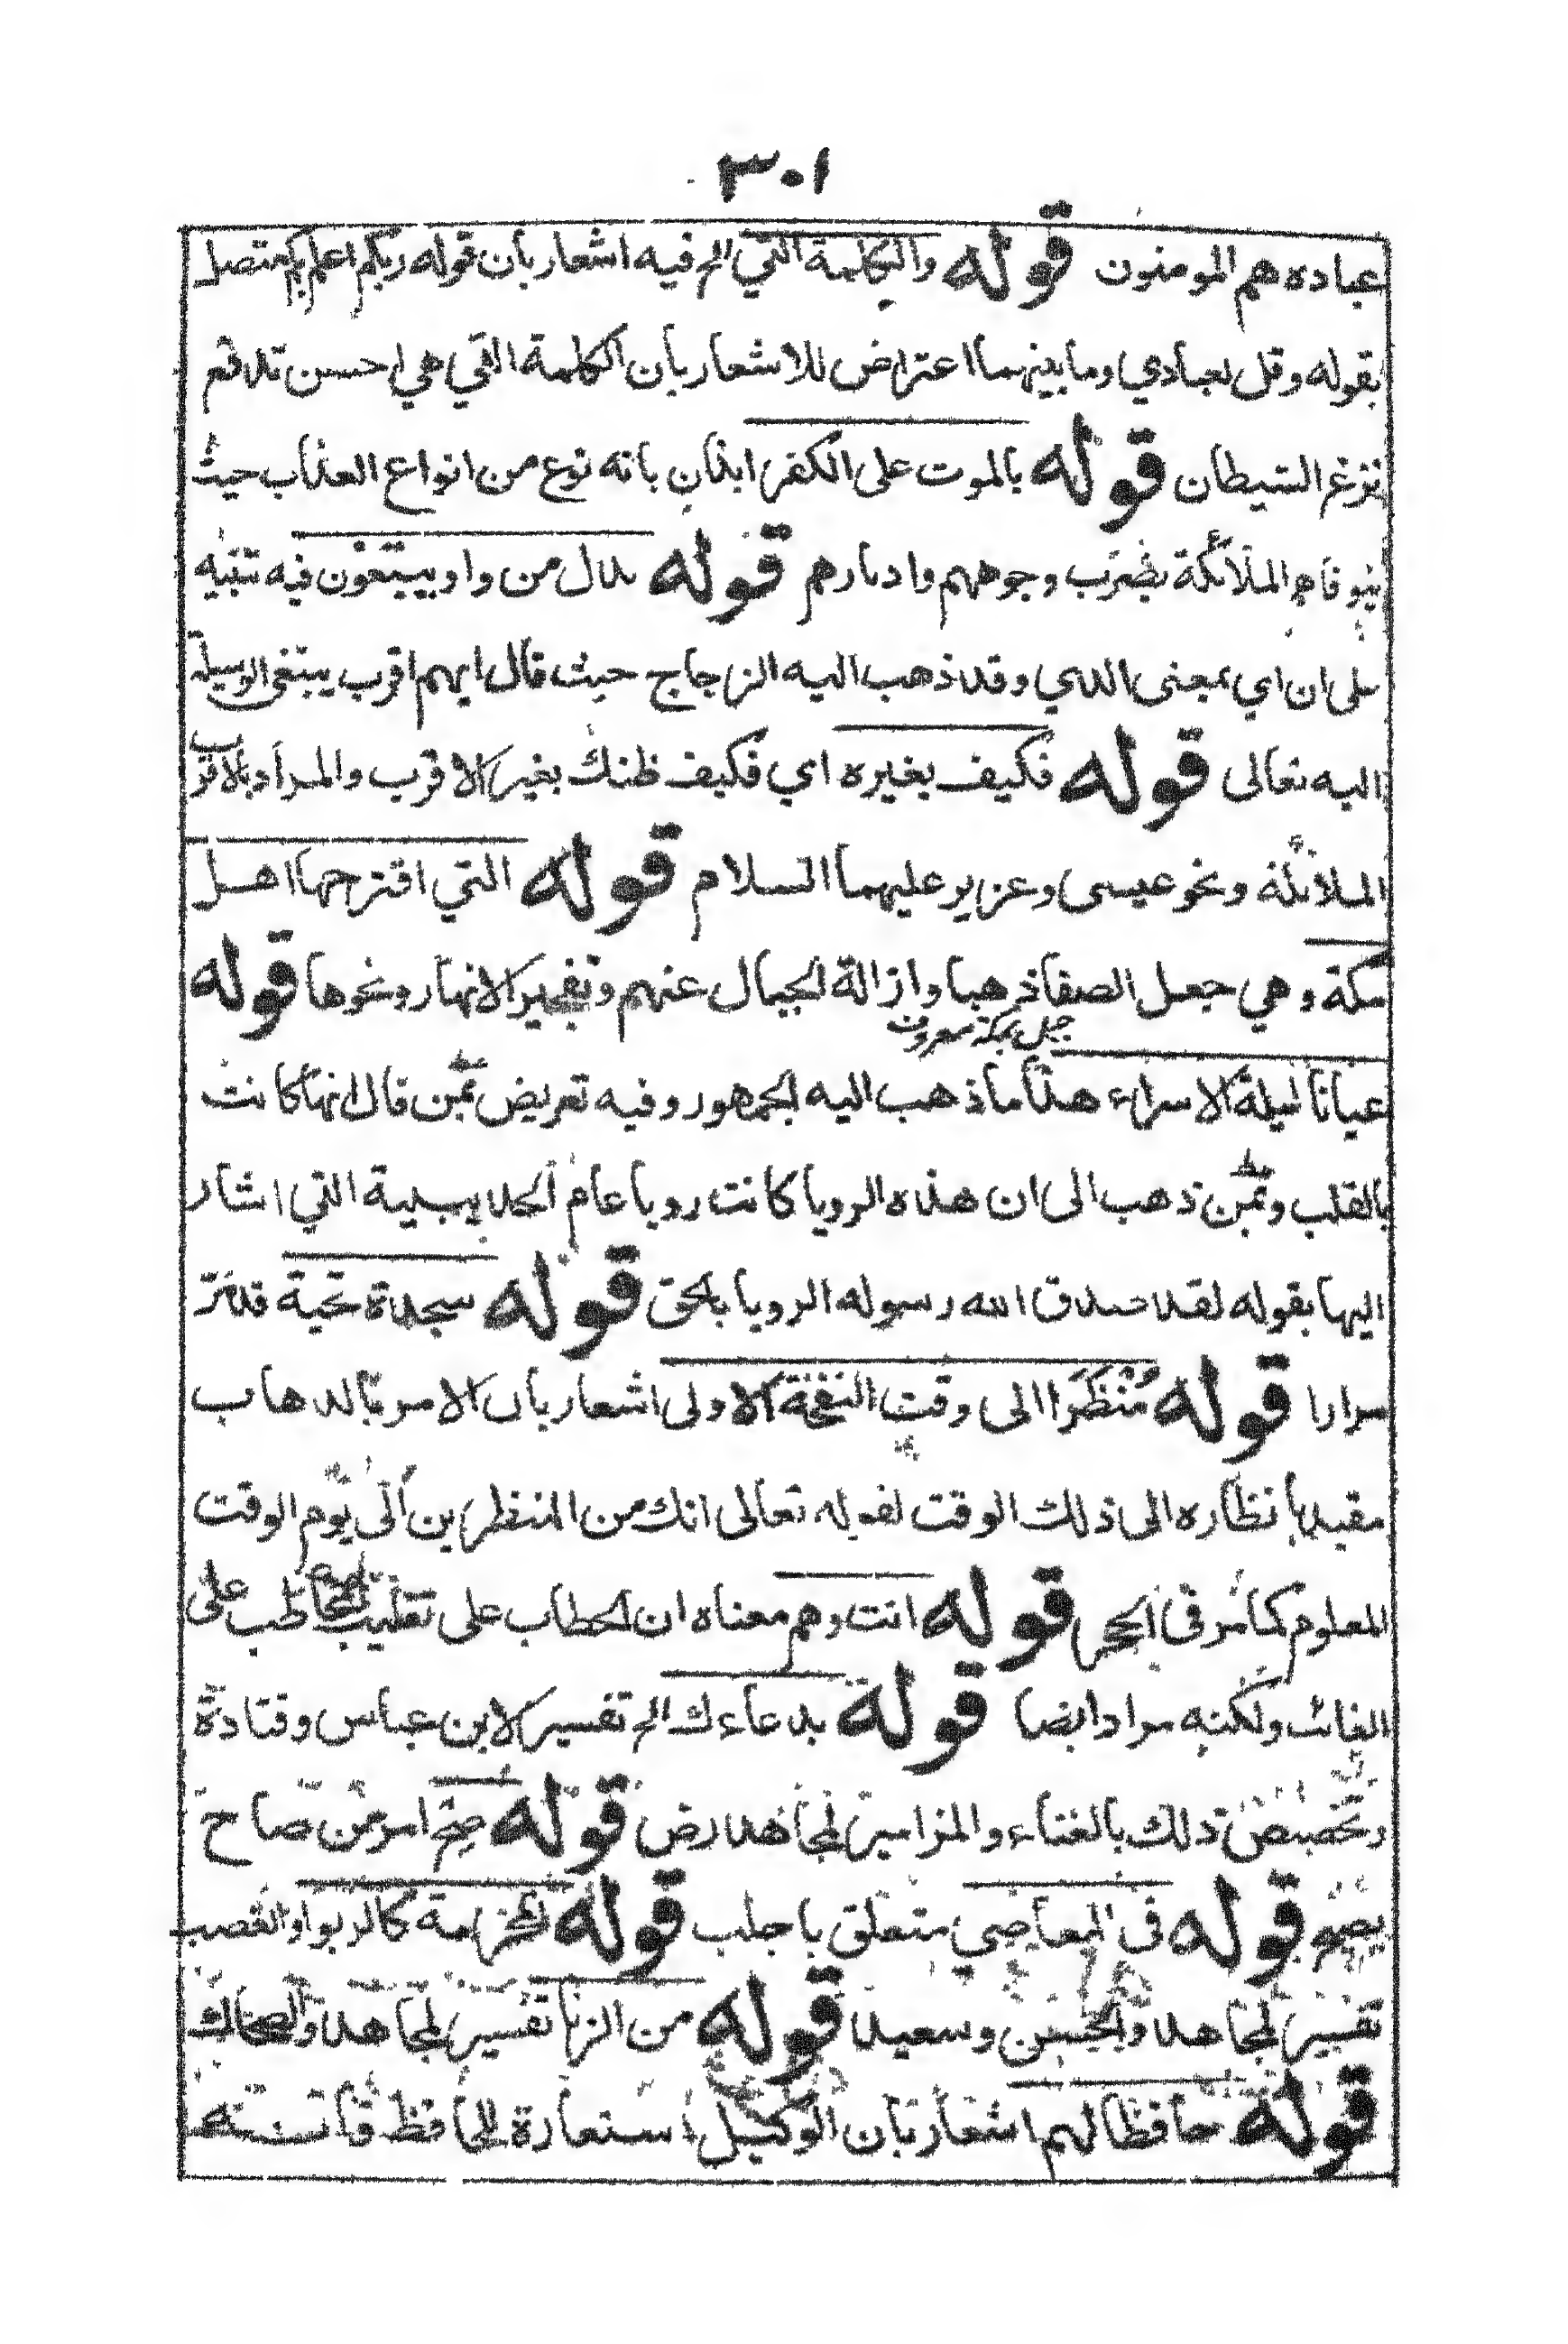 ٣٠١
عباده هم المومنون قوله والكلمة التي الخ فيه اشعار بان قوله ربكم اعلم بكم متصل
بقوله وقل لعبادي وما بينهما اعتراض للاشعار بان الكلمة التي هي احسن تدفع
نزغ الشيطان قوله بالموت على الكفر ايذان بانه نوع من انواع العذاب حيث
يتوفاهم الملائكة يضرب وجوههم وادبارهم قوله بدل من واو يبتغون فيه تنبيه
على ان اي بمعنى الذي وقد ذهب اليه الزجاج حيث قال ايهم اقرب يبتغى الوسيلة
اليه تعالى قوله فكيف بغيره اي فكيف ظنك بغير الاقرب والمراد بالاقرب
الملائكة ونحو عيسى وعزير عليهما السلام قوله التي اقترحها اهل
مكة وهي جعل الصفا ذهبا وازالة الجبال عنهم وتفجير الانهار ونحوها قوله
جبل بمكة معروف
عيانا ليلة الاسراء هذا ما ذهب اليه الجمهور وفيه تعريض بمن قال انها كانت
بالقلب وبمن ذهب الى ان هذه الرويا كانت رويا عام الحديبية التي اشار
اليها بقوله لقد صدق الله رسوله الرويا بالحق قوله سجدة تحية قد مر
مرارا قوله مُنْظَرًا الى وقت النفخة الاولى اشعار بان الامر بالذهاب
مقيد بانظاره الى ذلك الوقت لقوله تعالى انك من المنظرين الى يوم الوقت
المعلوم كما مر في الحجر قوله انت وهم معناه ان الخطاب على تغليب المخاطب على
الغائب ولكنه مراد ايضا قوله بدعاءك الخ تفسير لابن عباس وقتادة
وتخصيص ذلك بالغناء والمزامير لمجاهد رض قوله صِحْ امر من صاح
يصيح قوله في المعاصي متعلق باجلب قوله المحرمة كالربوا والغصب
تفسير لمجاهد والحسن وسعيد قوله من الزنا تفسير لمجاهد والضحاك
قوله حافظا لهم اشعار بان الوكيل استعارة للحافظ فان